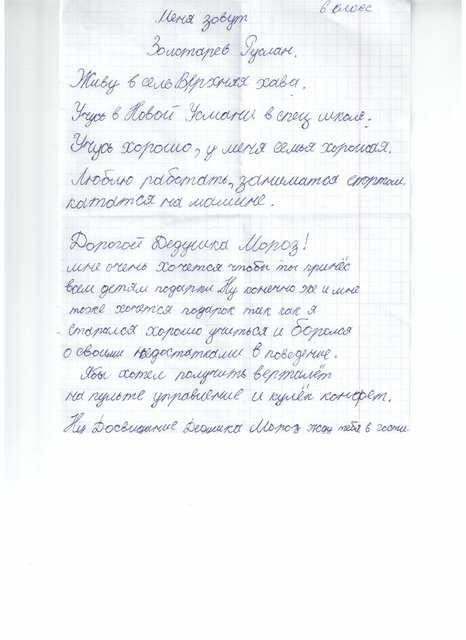 6 класс
Меня зовут
Золотарев Руслан.
Живу в селе Верхняя хава.
Учусь в Новой Усмани в спец школе.
Учусь хорошо, у меня семья хорошая.
Люблю работать, заниматся спортом
кататся на машине.
Дорогой Дедушка Мороз!
мне очень хочется чтобы ты принёс
всем детям подарки Ну конечно же и мне
тоже хочется подарок так как я
старался хорошо учиться и боролся
о своими недостатками в поведение.
Ябы хотел получить верталёт
на пульте управление и кулёк конфет.
Ну Досвидание Дедшика Мороз жду тебя в гости